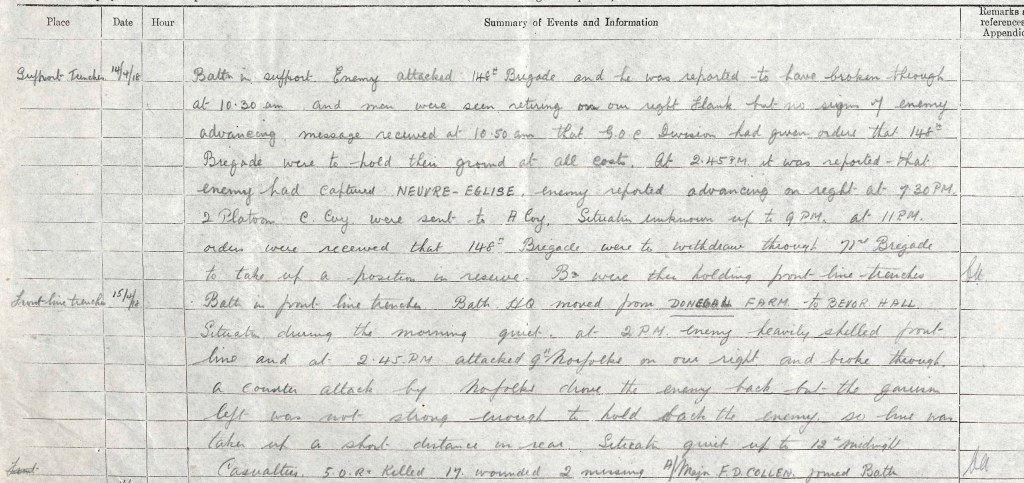 Place Date Hour Summary of Events and Information Remarks
references
Appendic
Support Trenches 14/4/18 Battn in support. Enemy attacked 148th Brigade and he was reported to have broken through
at 10.30 am and men were seen retiring on our right flank but no signs of enemy
advancing. message received at 10.50 am that G.O.C Division had given orders that 148th
Bregade were to hold their ground at all costs. At 2.45 PM it was reported that
enemy had captured NEUVRE-EGLISE. enemy reported advancing on right at 7.30 PM.
2 Platoon C. Coy. were sent to A Coy. Situatn unknown up to 9 PM. at 11 PM.
orders were received that 148th Bregade were to withdraw through 71st Bregade
to take up a position in reserve. Bn were then holding front line trenches
Front line trenches 15/4/18 Battn in front line trenches Battn HQ moved from DONEGAL FARM to BEVOR HALL
Situatn during the morning quiet. at 2 P.M. enemy heavily shelled front
line and at 2.45. PM attacked 9th Norfolks on our right and broke through.
a counter attack by Norfolks drove the enemy back but the garrison
left was not strong enough to hold back the enemy. so line was
taken up a short distance in rear Situatn quiet up to 12th midnight
Casualties. 5. O.R. Killed 17. wounded 2 missing A/Major F.D. COLLEN. joined Battn